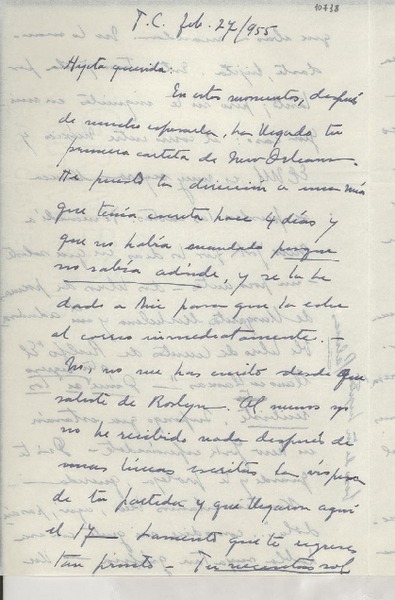 10438
T.C. feb. 27/955
Hijita querida:
En estos momentos, después
de mucho esperarla, ha llegado tu
primera carteta de New Orleans.
He puesto la dirección a una mía
que tenía escrita hace 4 días y
que no había mandado porque
no sabía adónde, y se la he
dado a para que la eche
al correo inmediatamente.—
No, no me has escrito desde que
saliste de Roslyn. Al menos yo
no he recibido nada después de
unas líneas escritas la víspera
de tu partida y que llegaron aquí
el 17— Lamento que te regreses
tan pronto— Tu necesitas sol